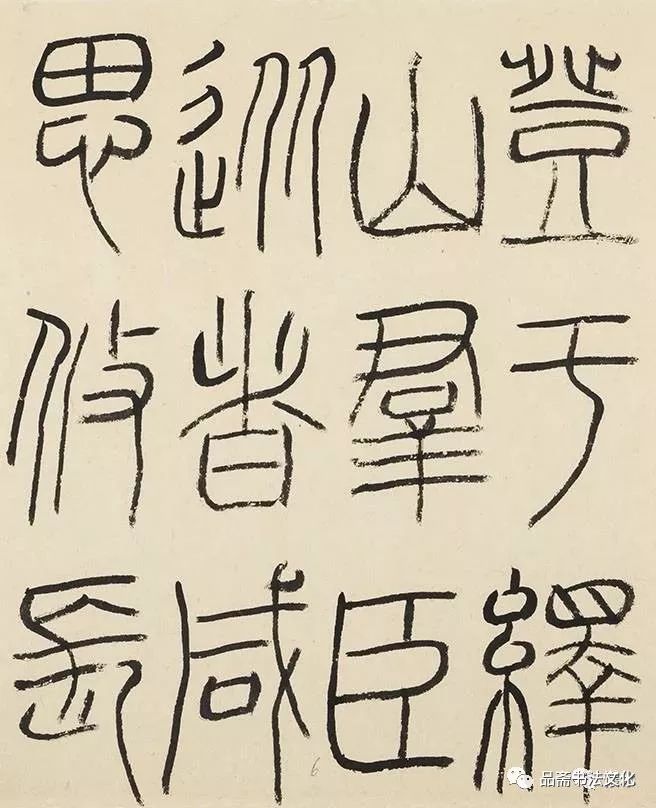 登于繹
山羣臣
從者咸
思攸長
6
品斋书法文化